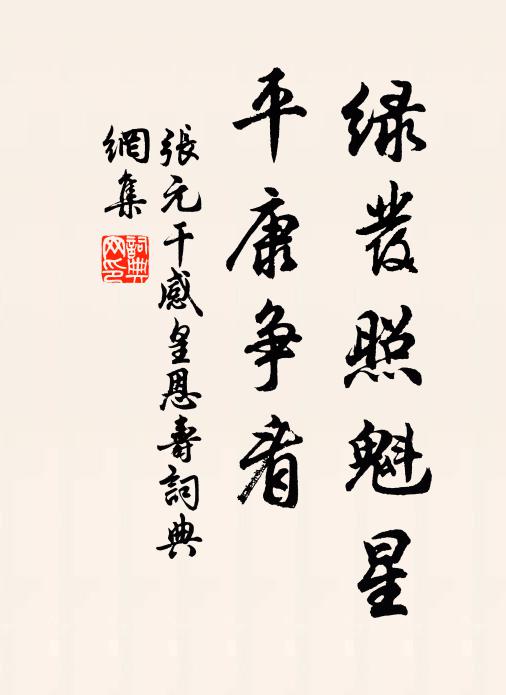 绿發照魁星
平康争看
張元干感皇恩壽詞典
網集
詞典
网印